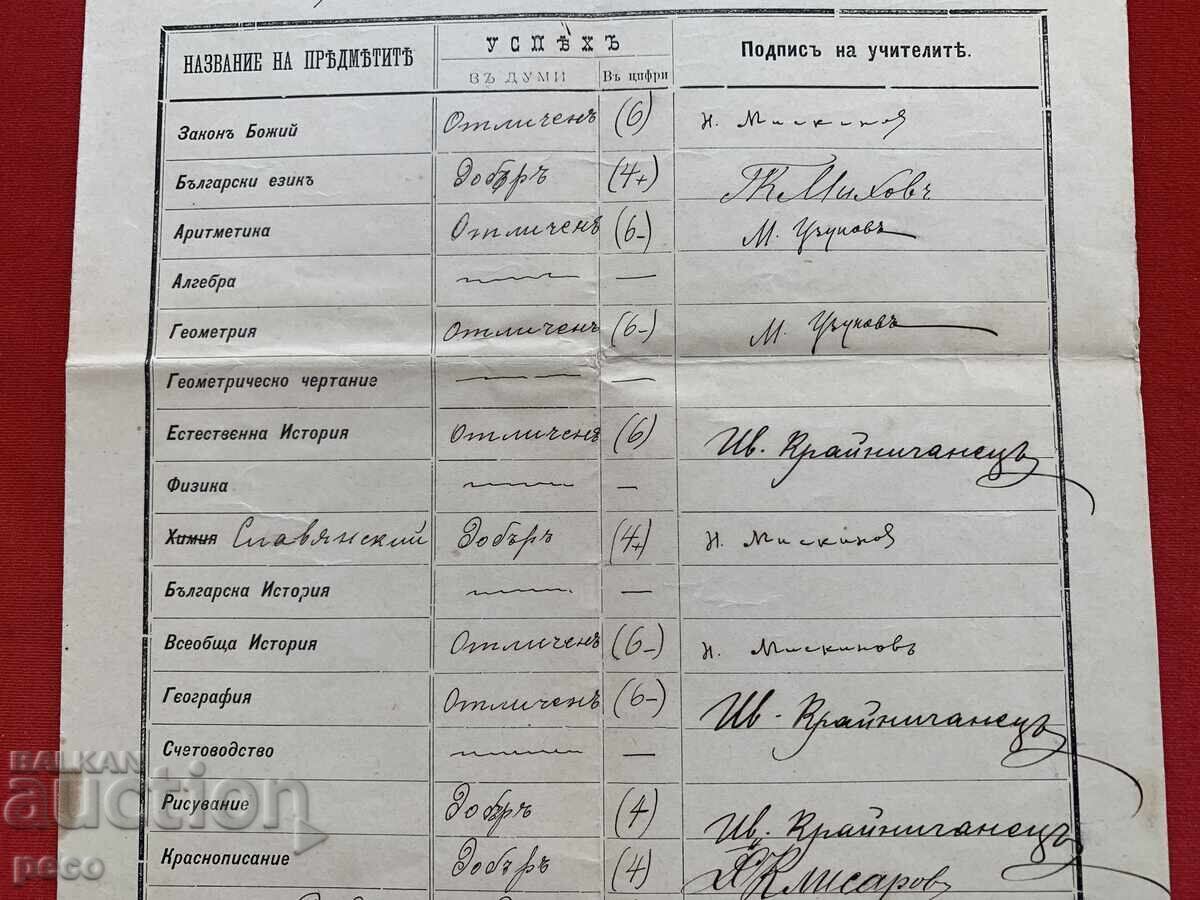 НАЗВАНИЕ НА ПРѢДМѢТИТѢ УСПѢХЪ Подписъ на учителитѣ.
ВЪ ДУМИ Въ цифри
Законъ Божий Отличенъ (6) Н. Мискинов
Български езикъ Добъръ (4+) Миховъ
Аритметика Отличенъ (6-) М. Узуновъ
Алгебра —
Геометрия Отличенъ (6-) М. Узуновъ
Геометрическо чертание —
Естественна История Отличенъ (6) Ив. Крайничанецъ
Физика —
Химия Славянский Добъръ (4+) Н. Мискинов
Българска История —
Всеобща История Отличенъ (6-) Н. Мискиновъ
География Отличенъ (6-) Ив. Крайничанецъ
Счетоводство —
Рисувание Добъръ (4) Ив. Крайничанецъ
Краснописание Добъръ (4) Клисаровъ
BALKAN
auction
peco